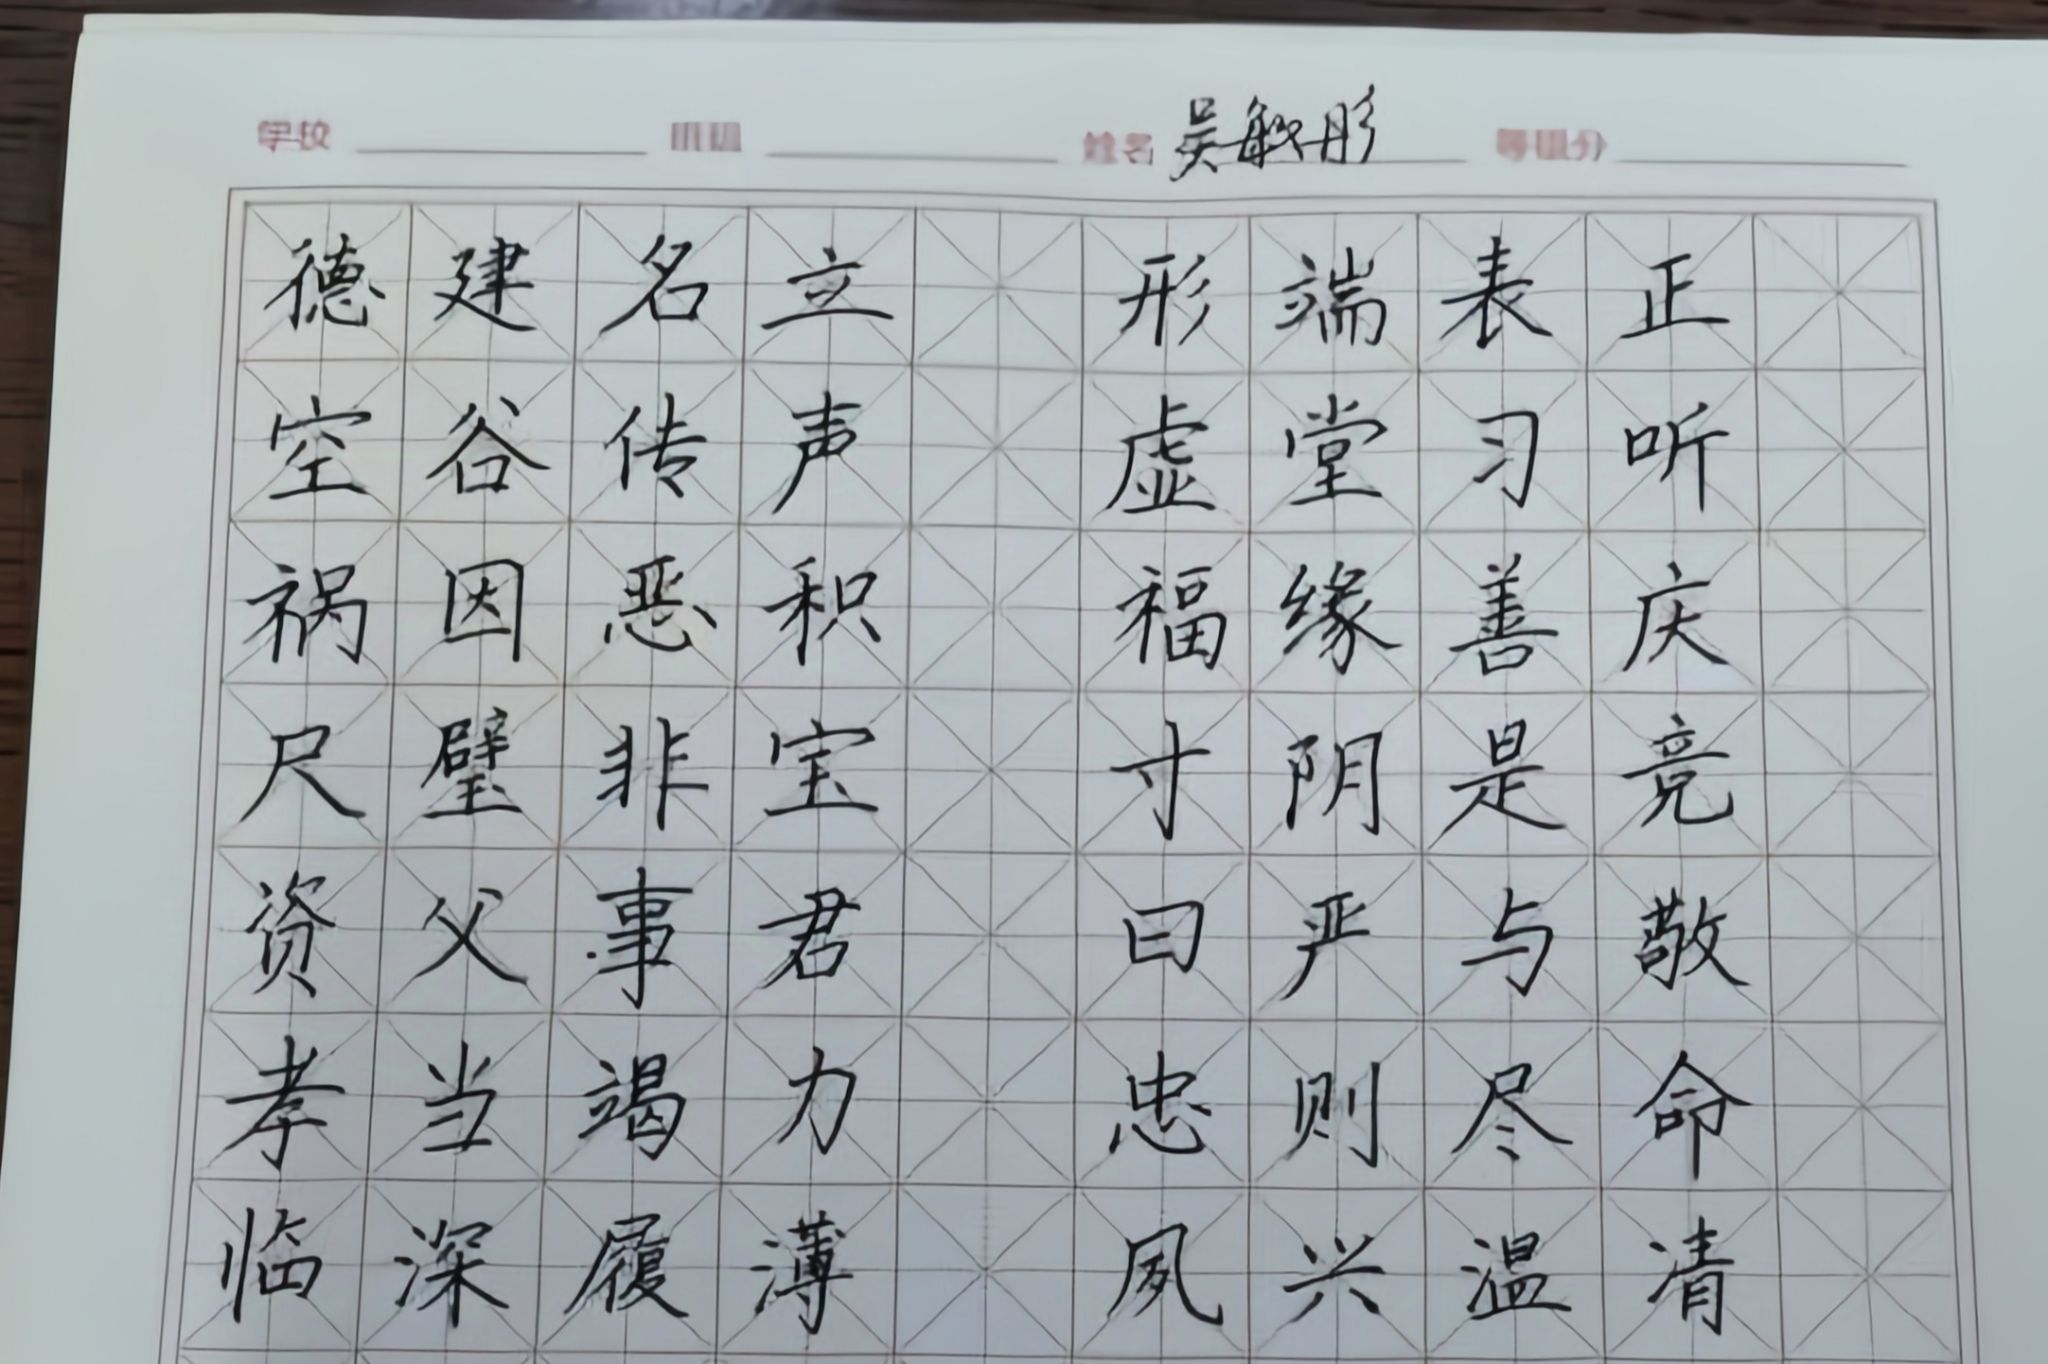 学校 班级 姓名 吴敏彤 等级分
德建名立 形端表正
空谷传声 虚堂习听
祸因恶积 福缘善庆
尺璧非宝 寸阴是竞
资父事君 曰严与敬
孝当竭力 忠则尽命
临深履薄 夙兴温凊